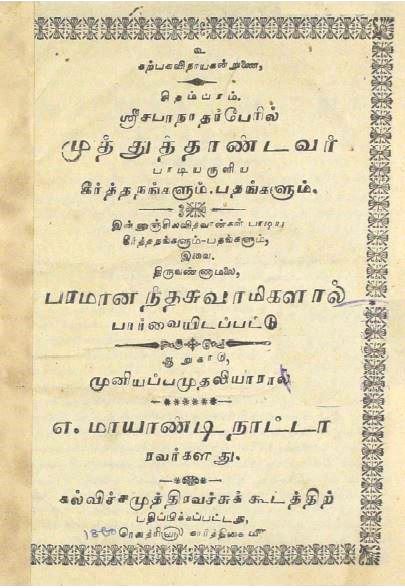 உ
கற்பகவிநாயகன்றுணை,
சிதம்பரம்.
ஸ்ரீசபாநாதர்பேரில்
முத்துத்தாண்டவர்
பாடியருளிய
கீர்த்தநங்களும், பதங்களும்.
இன்னுஞ்சிலவித்வான்கள் பாடிய
கீர்த்தநங்களும்-பதங்களும்,
இவை.
திருவண்ணாமலை,
பரமானந்தசுவாமிகளால்
பார்வையிடப்பட்டு
ஆறுகாடு,
முனியப்பமுதலியாரால்
எ. மாயாண்டிநாட்டா
ரவர்களது.
கல்விச்சமுத்திரவச்சுக் கூடத்திற்
பதிப்பிக்கப்பட்டது,
கார்த்திகை